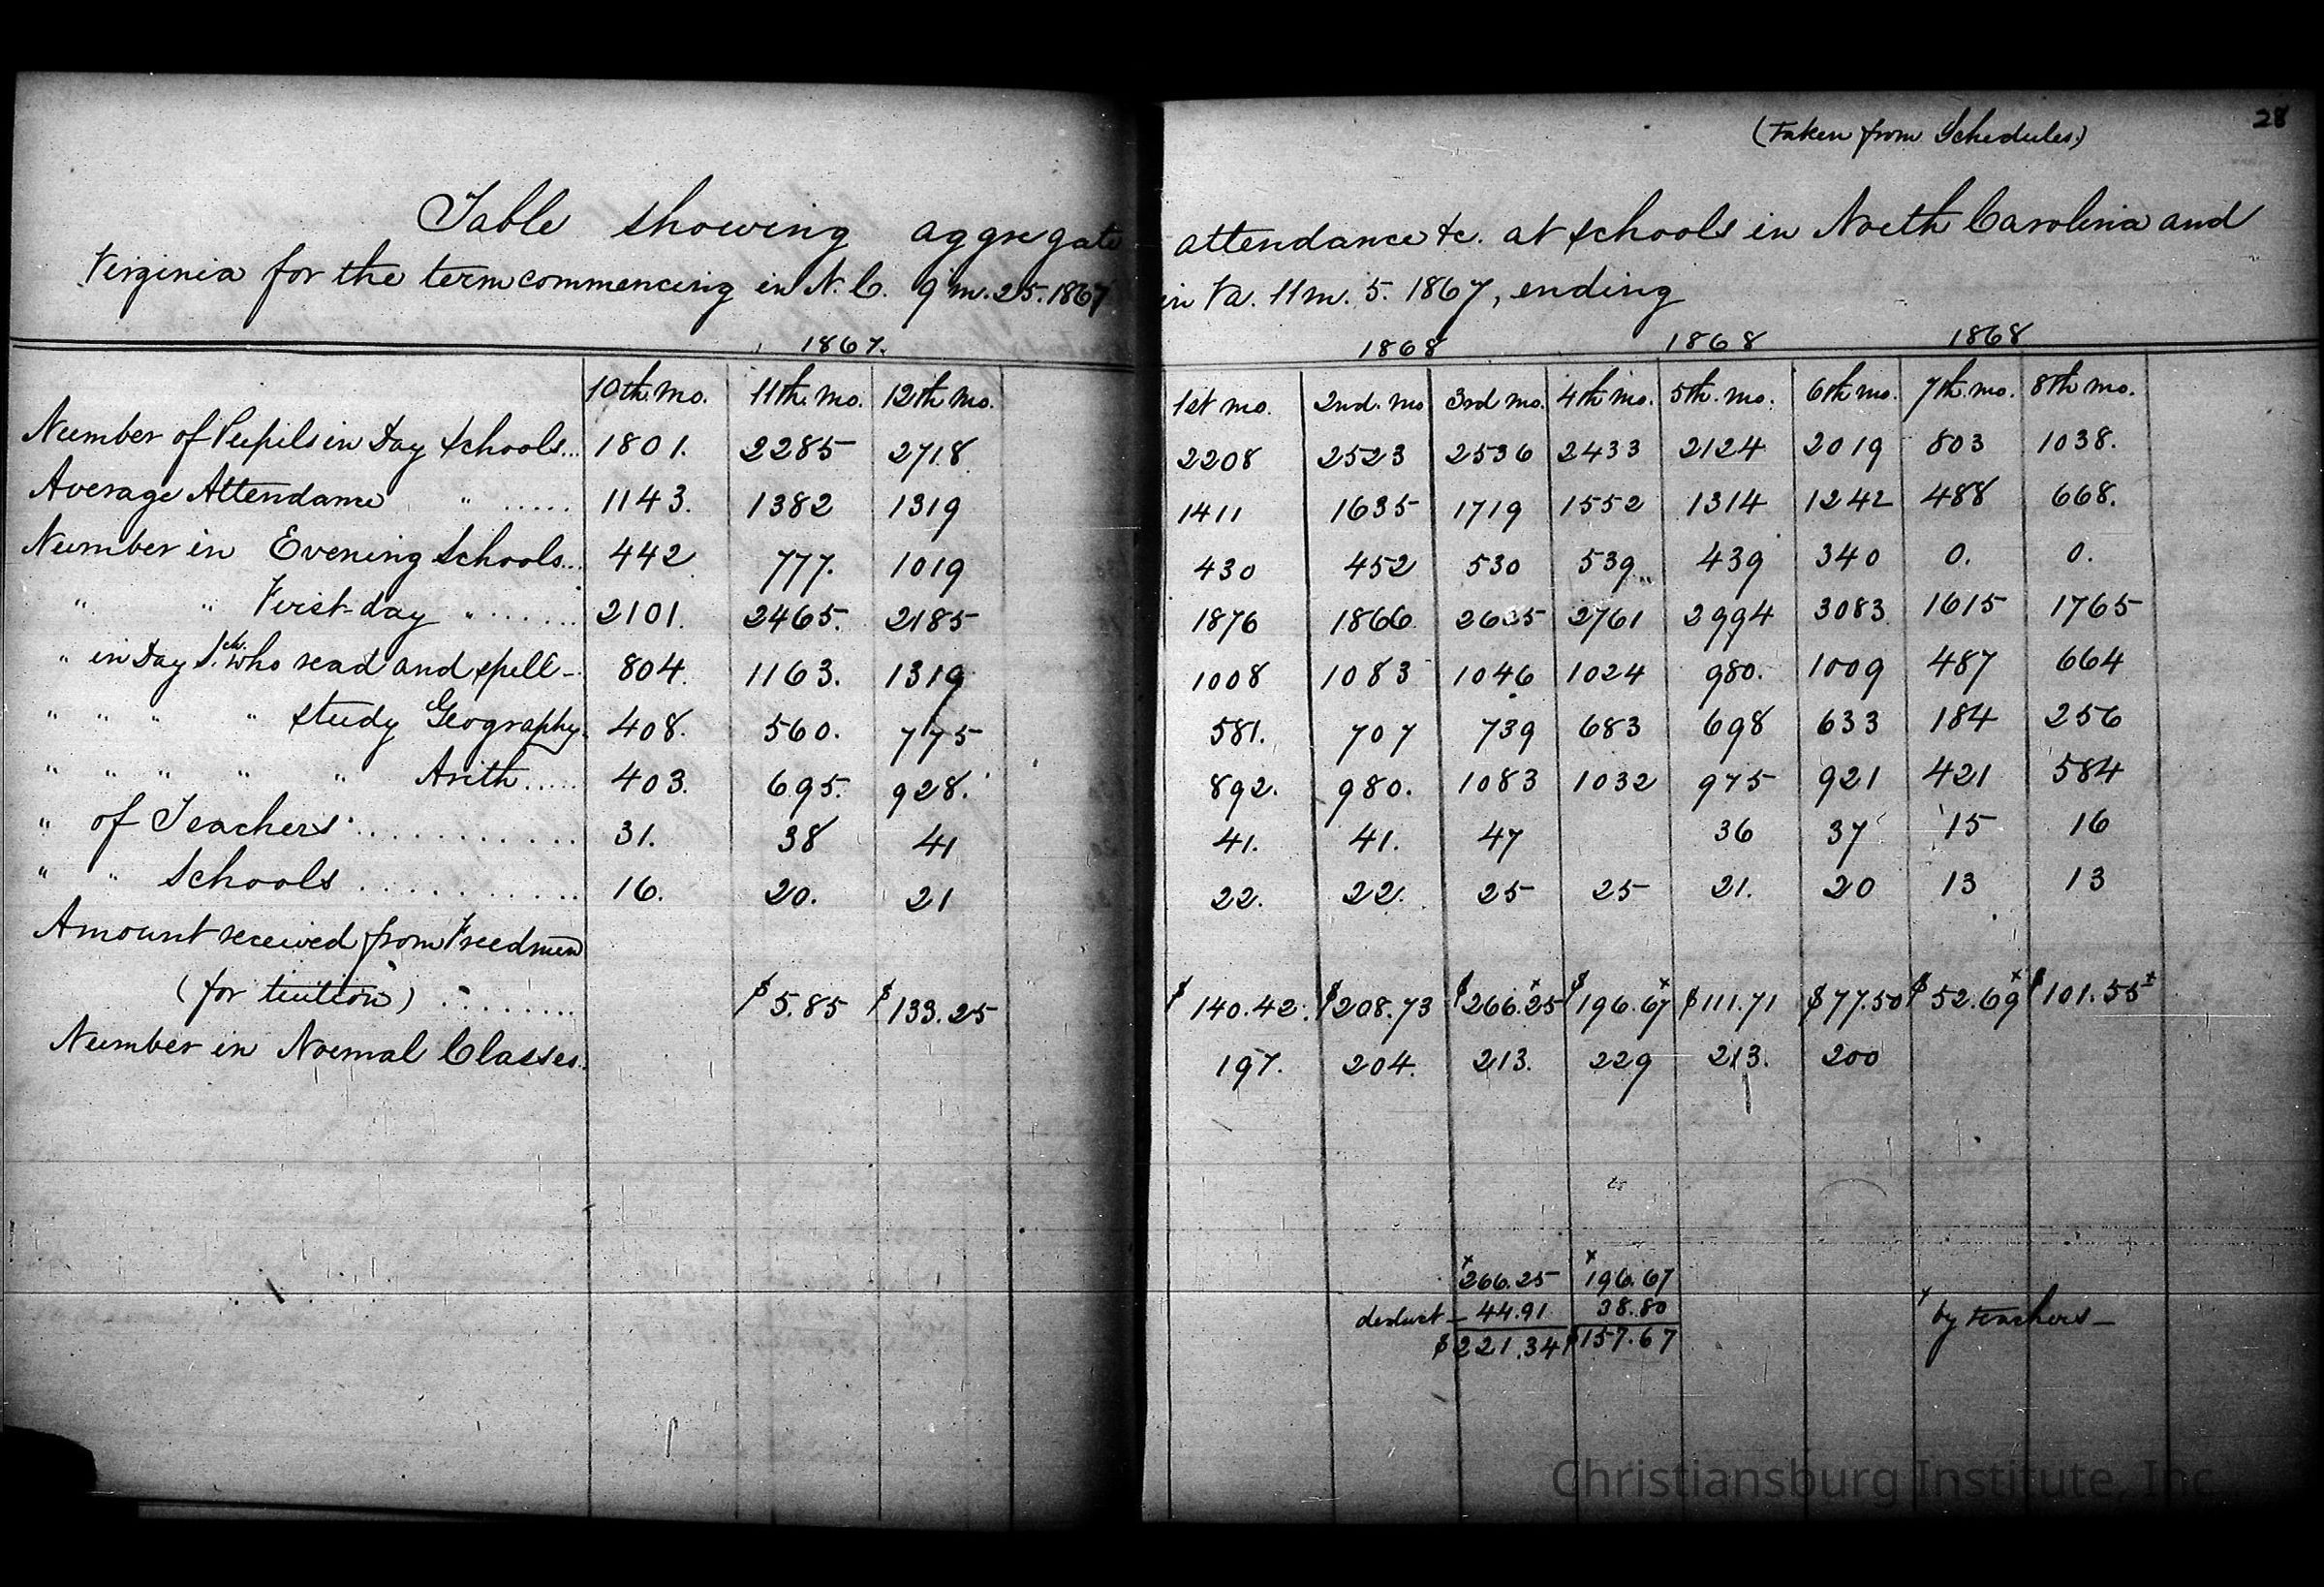 (Taken from Schedules) 28
Table showing aggregate attendance &c. at schools in North Carolina and
Virginia for the term commencing in N.C. 9 m. 25. 1867 in Va. 11m. 5. 1867, ending
1867. 1868 1868 1868
10th. mo. 11th. mo. 12th mo. 1st mo. 2nd. mo 3rd mo. 4th mo. 5th. mo. 6th mo. 7th. mo. 8th mo.
Number of Pupils in Day Schools... 1801. 2285 2718. 2208 2523 2536 2433 2124 2019 803 1038.
Average Attendance " ..... 1143. 1382 1319 1411 1635 1719 1552 1314 1242 488 668.
Number in Evening Schools... 442. 777. 1019 430 452 530 539 439 340 0. 0.
" " First-day " ...... 2101. 2465. 2185 1876 1866 2635 2761 2994 3083 1615 1765
" in Day Sch. who read and spell - 804. 1163. 1319 1008 1083 1046 1024 980. 1009 487 664
" " " " study Geography. 408. 560. 775 581. 707 739 683 698 633 184 256
" " " " " Arith..... 403. 695. 928. 892. 980. 1083 1032 975 921 421 584
" of Teachers ............ 31. 38 41 41. 41. 47 36 37 15 16
" " Schools ............ 16. 20. 21 22. 22. 25 25 21. 20 13 13
Amount received from Freedmen
(for tuition) ......... $5.85 $133.25 $140.42. $208.73 $266.25x $196.67x $111.71 $77.50 $52.69x $101.55x
Number in Normal Classes. 197. 204. 213. 229 213. 200
x266.25 x196.67
deduct - 44.91 38.80 x by teachers -
$221.34 $157.67
Christiansburg Institute, Inc